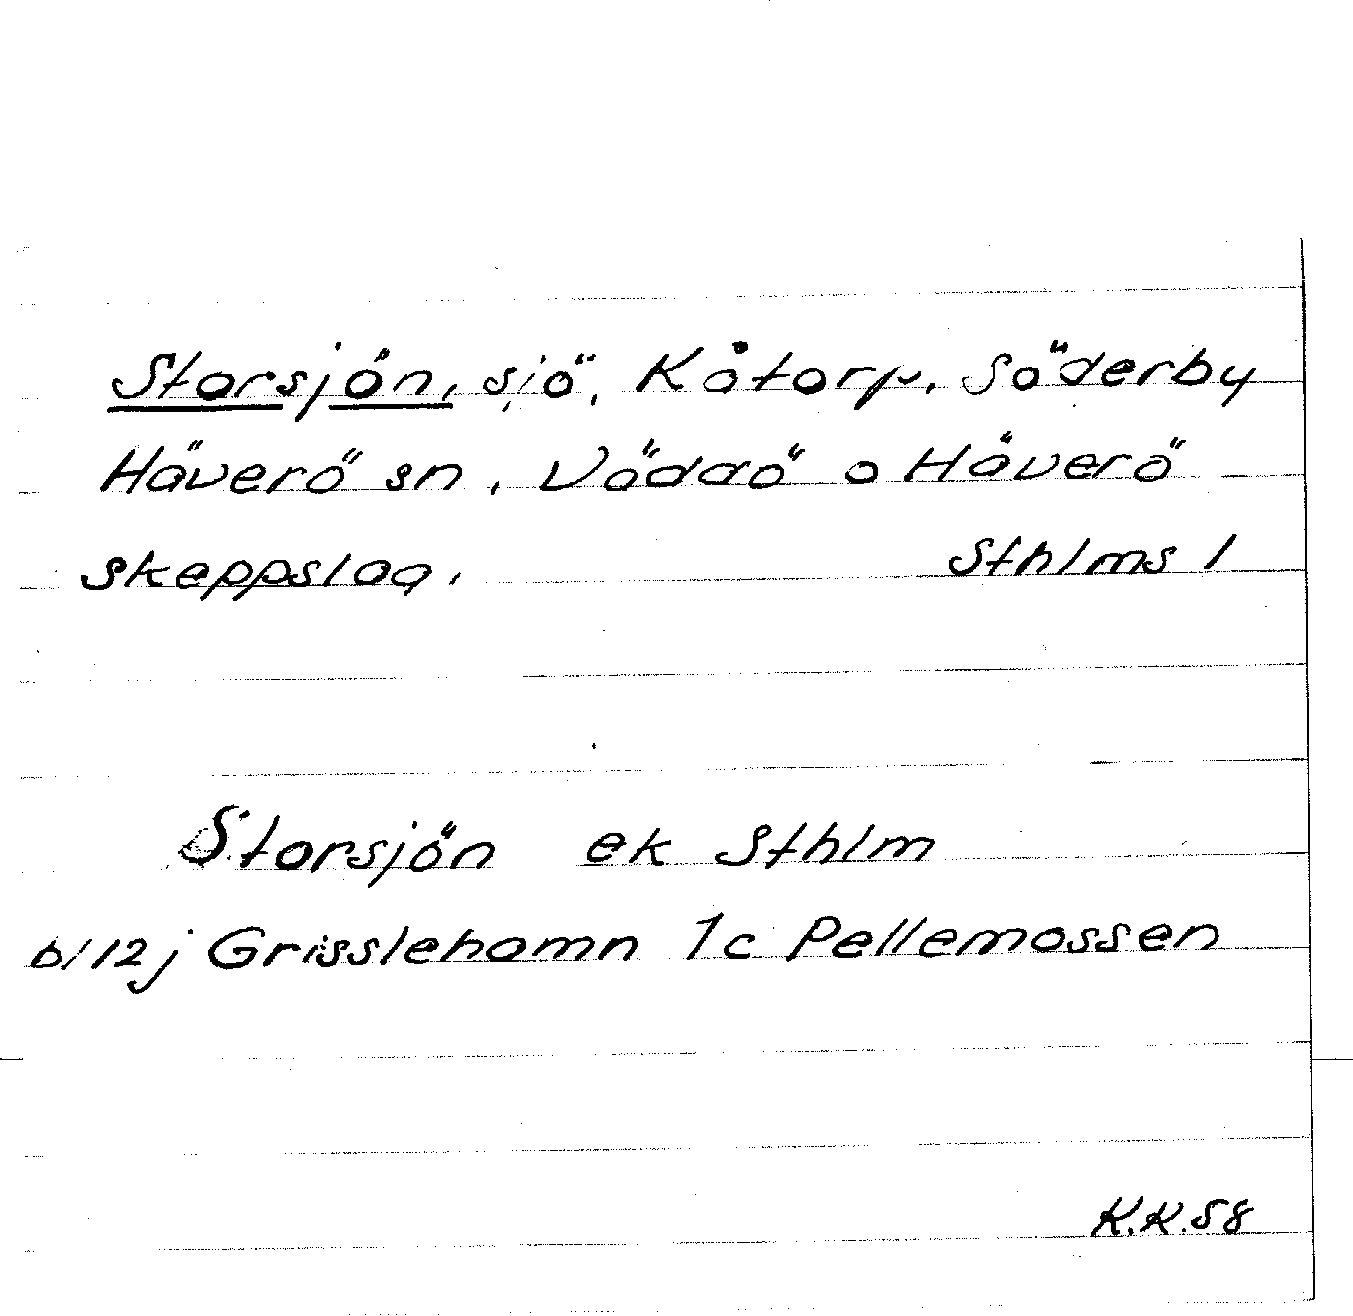 Storsjön, sjö, Kåtorp, Söderby
Häverö sn, Vöddö o Häverö
skeppslag. Sthlms l
Storsjön ek Sthlm
bl 12j Grisslehamn 1c Pellemossen
K.K. 58